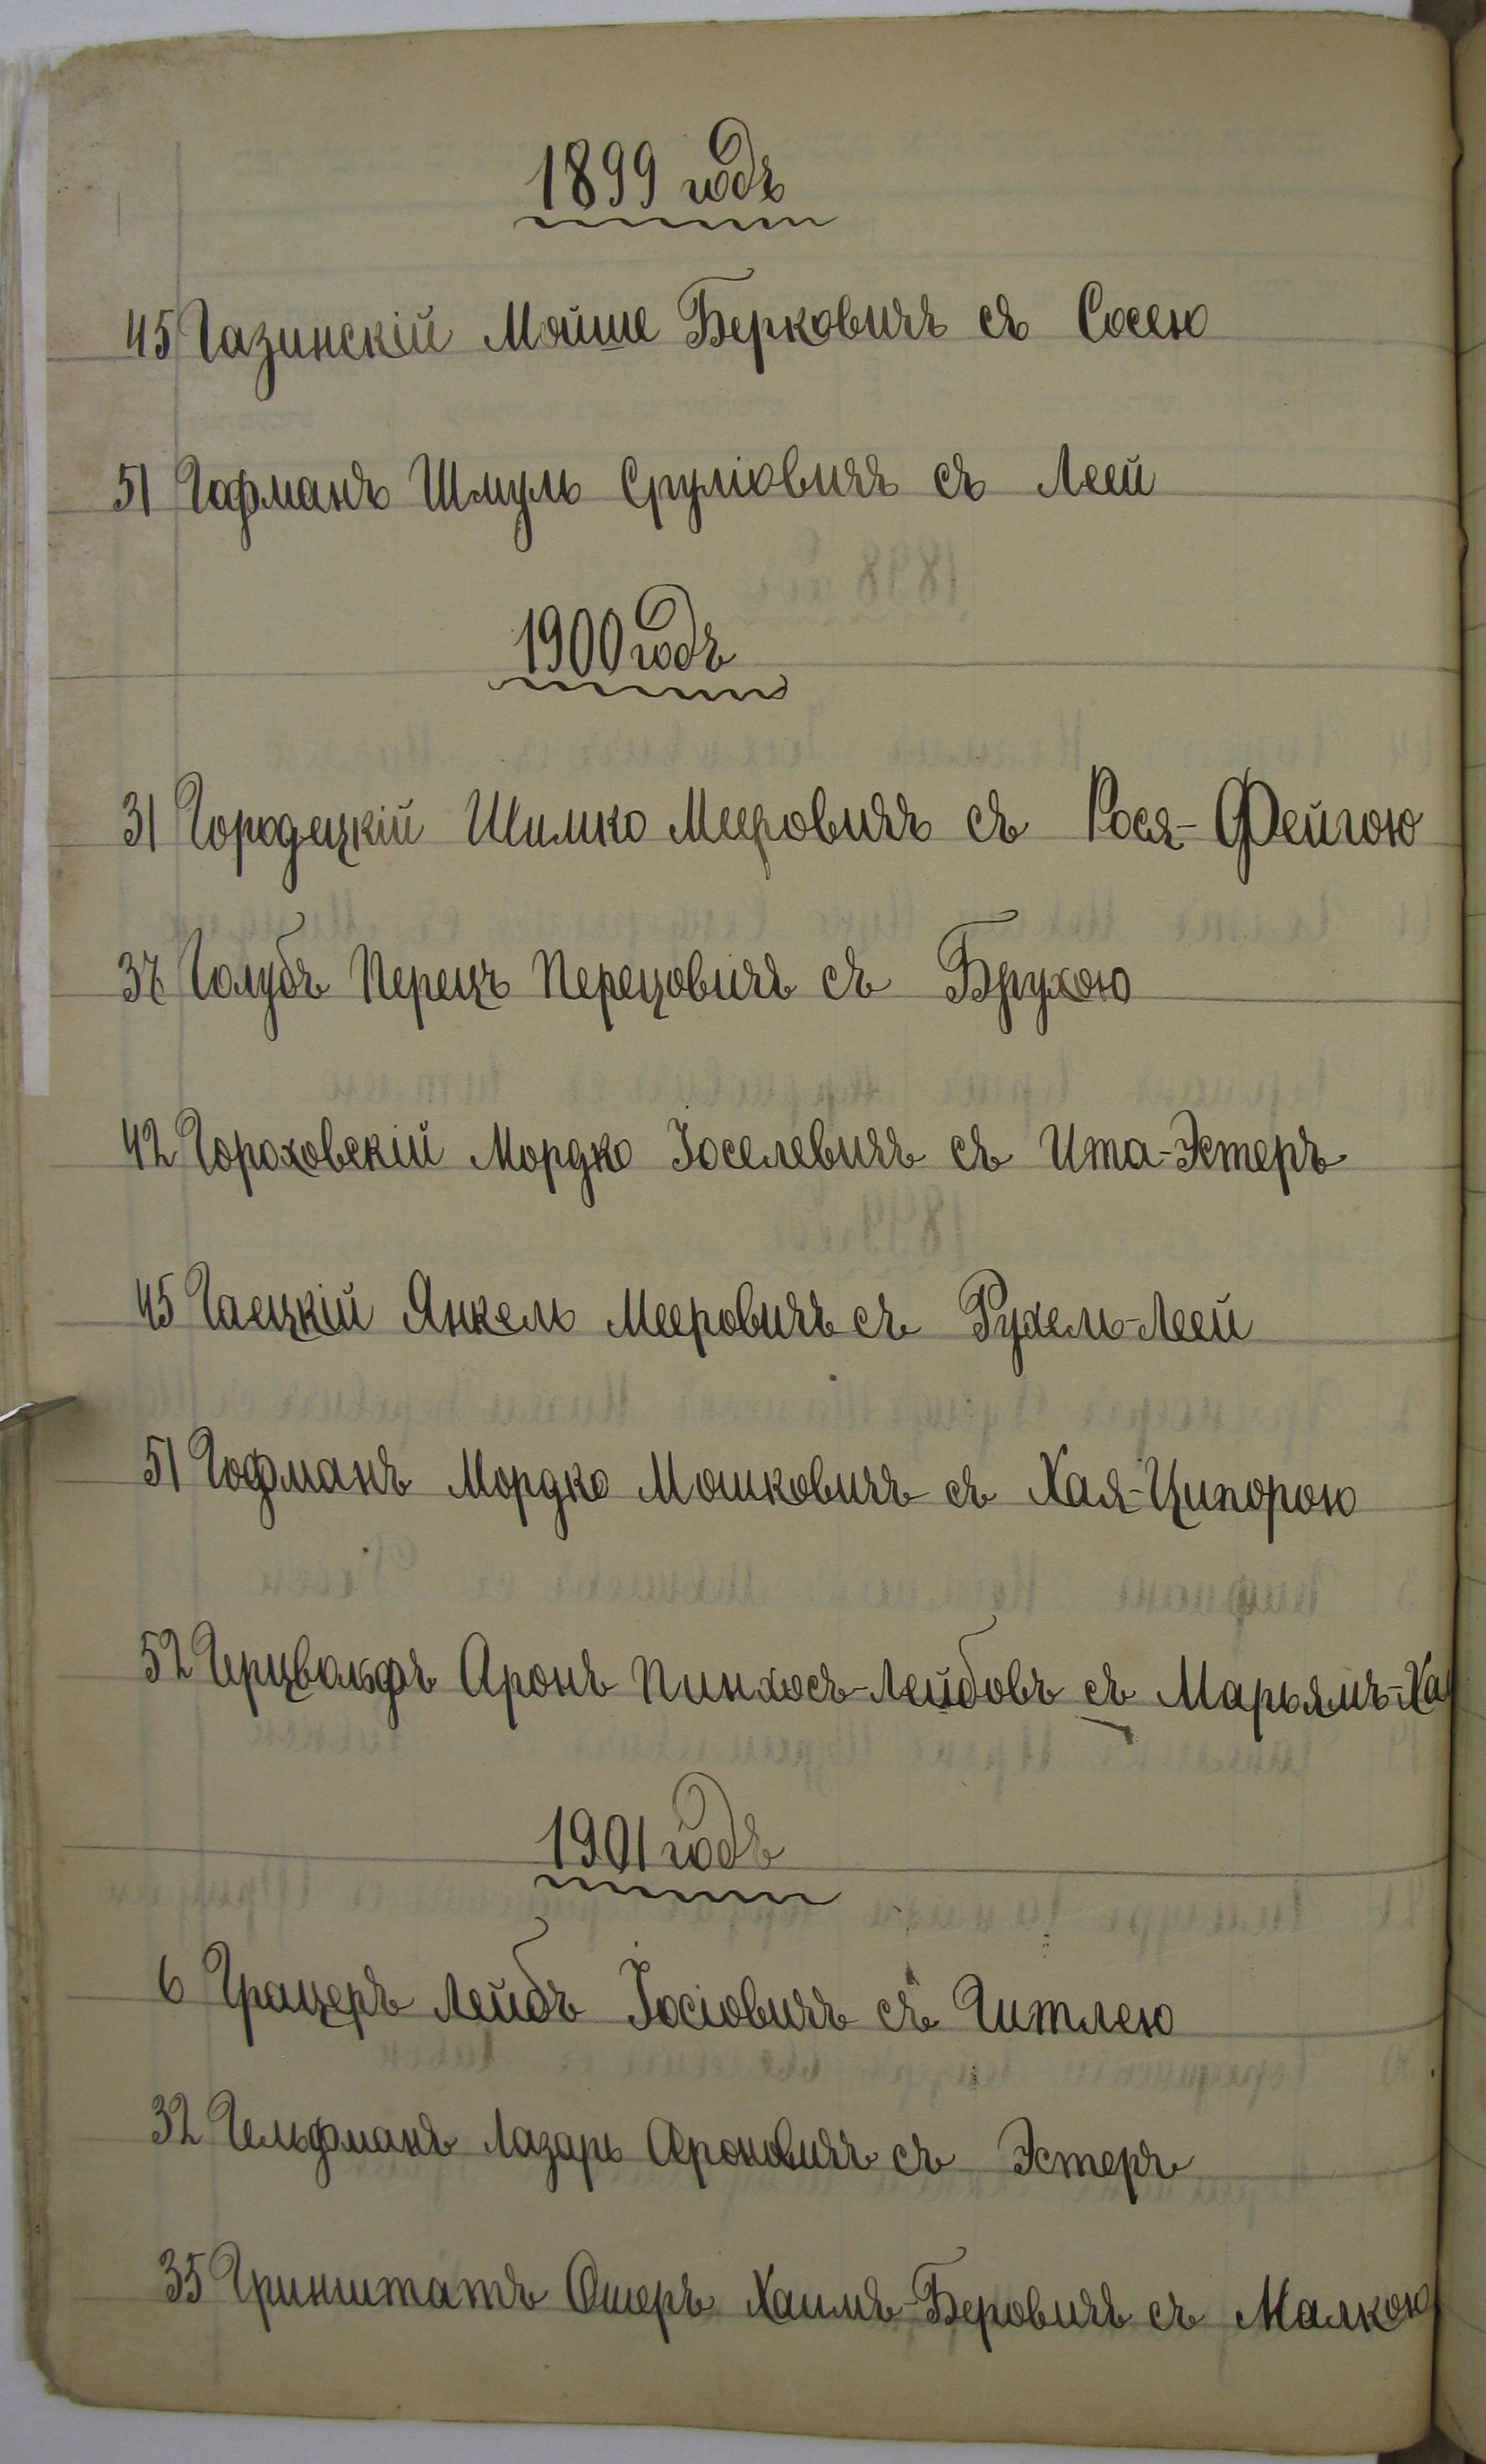 1899 годъ
45 Газинскій Мойше Берковичъ съ Сосею
51 Гофманъ Шмуль Сруліовичъ съ Леей
1900 годъ
31 Городецкій Шимко Мееровичъ съ Рося-Фейгою
37 Голубъ Перецъ Перецовичъ съ Брухою
42 Гороховскій Мордко Іоселевичъ съ Ита-Эстеръ
45 Гаецкій Янкель Мееровичъ съ Рухель-Леей
51 Гофманъ Мордко Мошковичъ съ Хая-Ципорою
52 Герцвольфъ Аронъ Пинхосъ-Лейбовъ съ Марьямъ-Ха
1901 годъ
6 Грацеръ Лейбъ Іосіовичъ съ Гитлею
32 Гельфманъ Лазарь Ароновичъ съ Эстеръ
35 Гринштатъ Ошеръ Хаимъ-Беровичъ съ Малкою